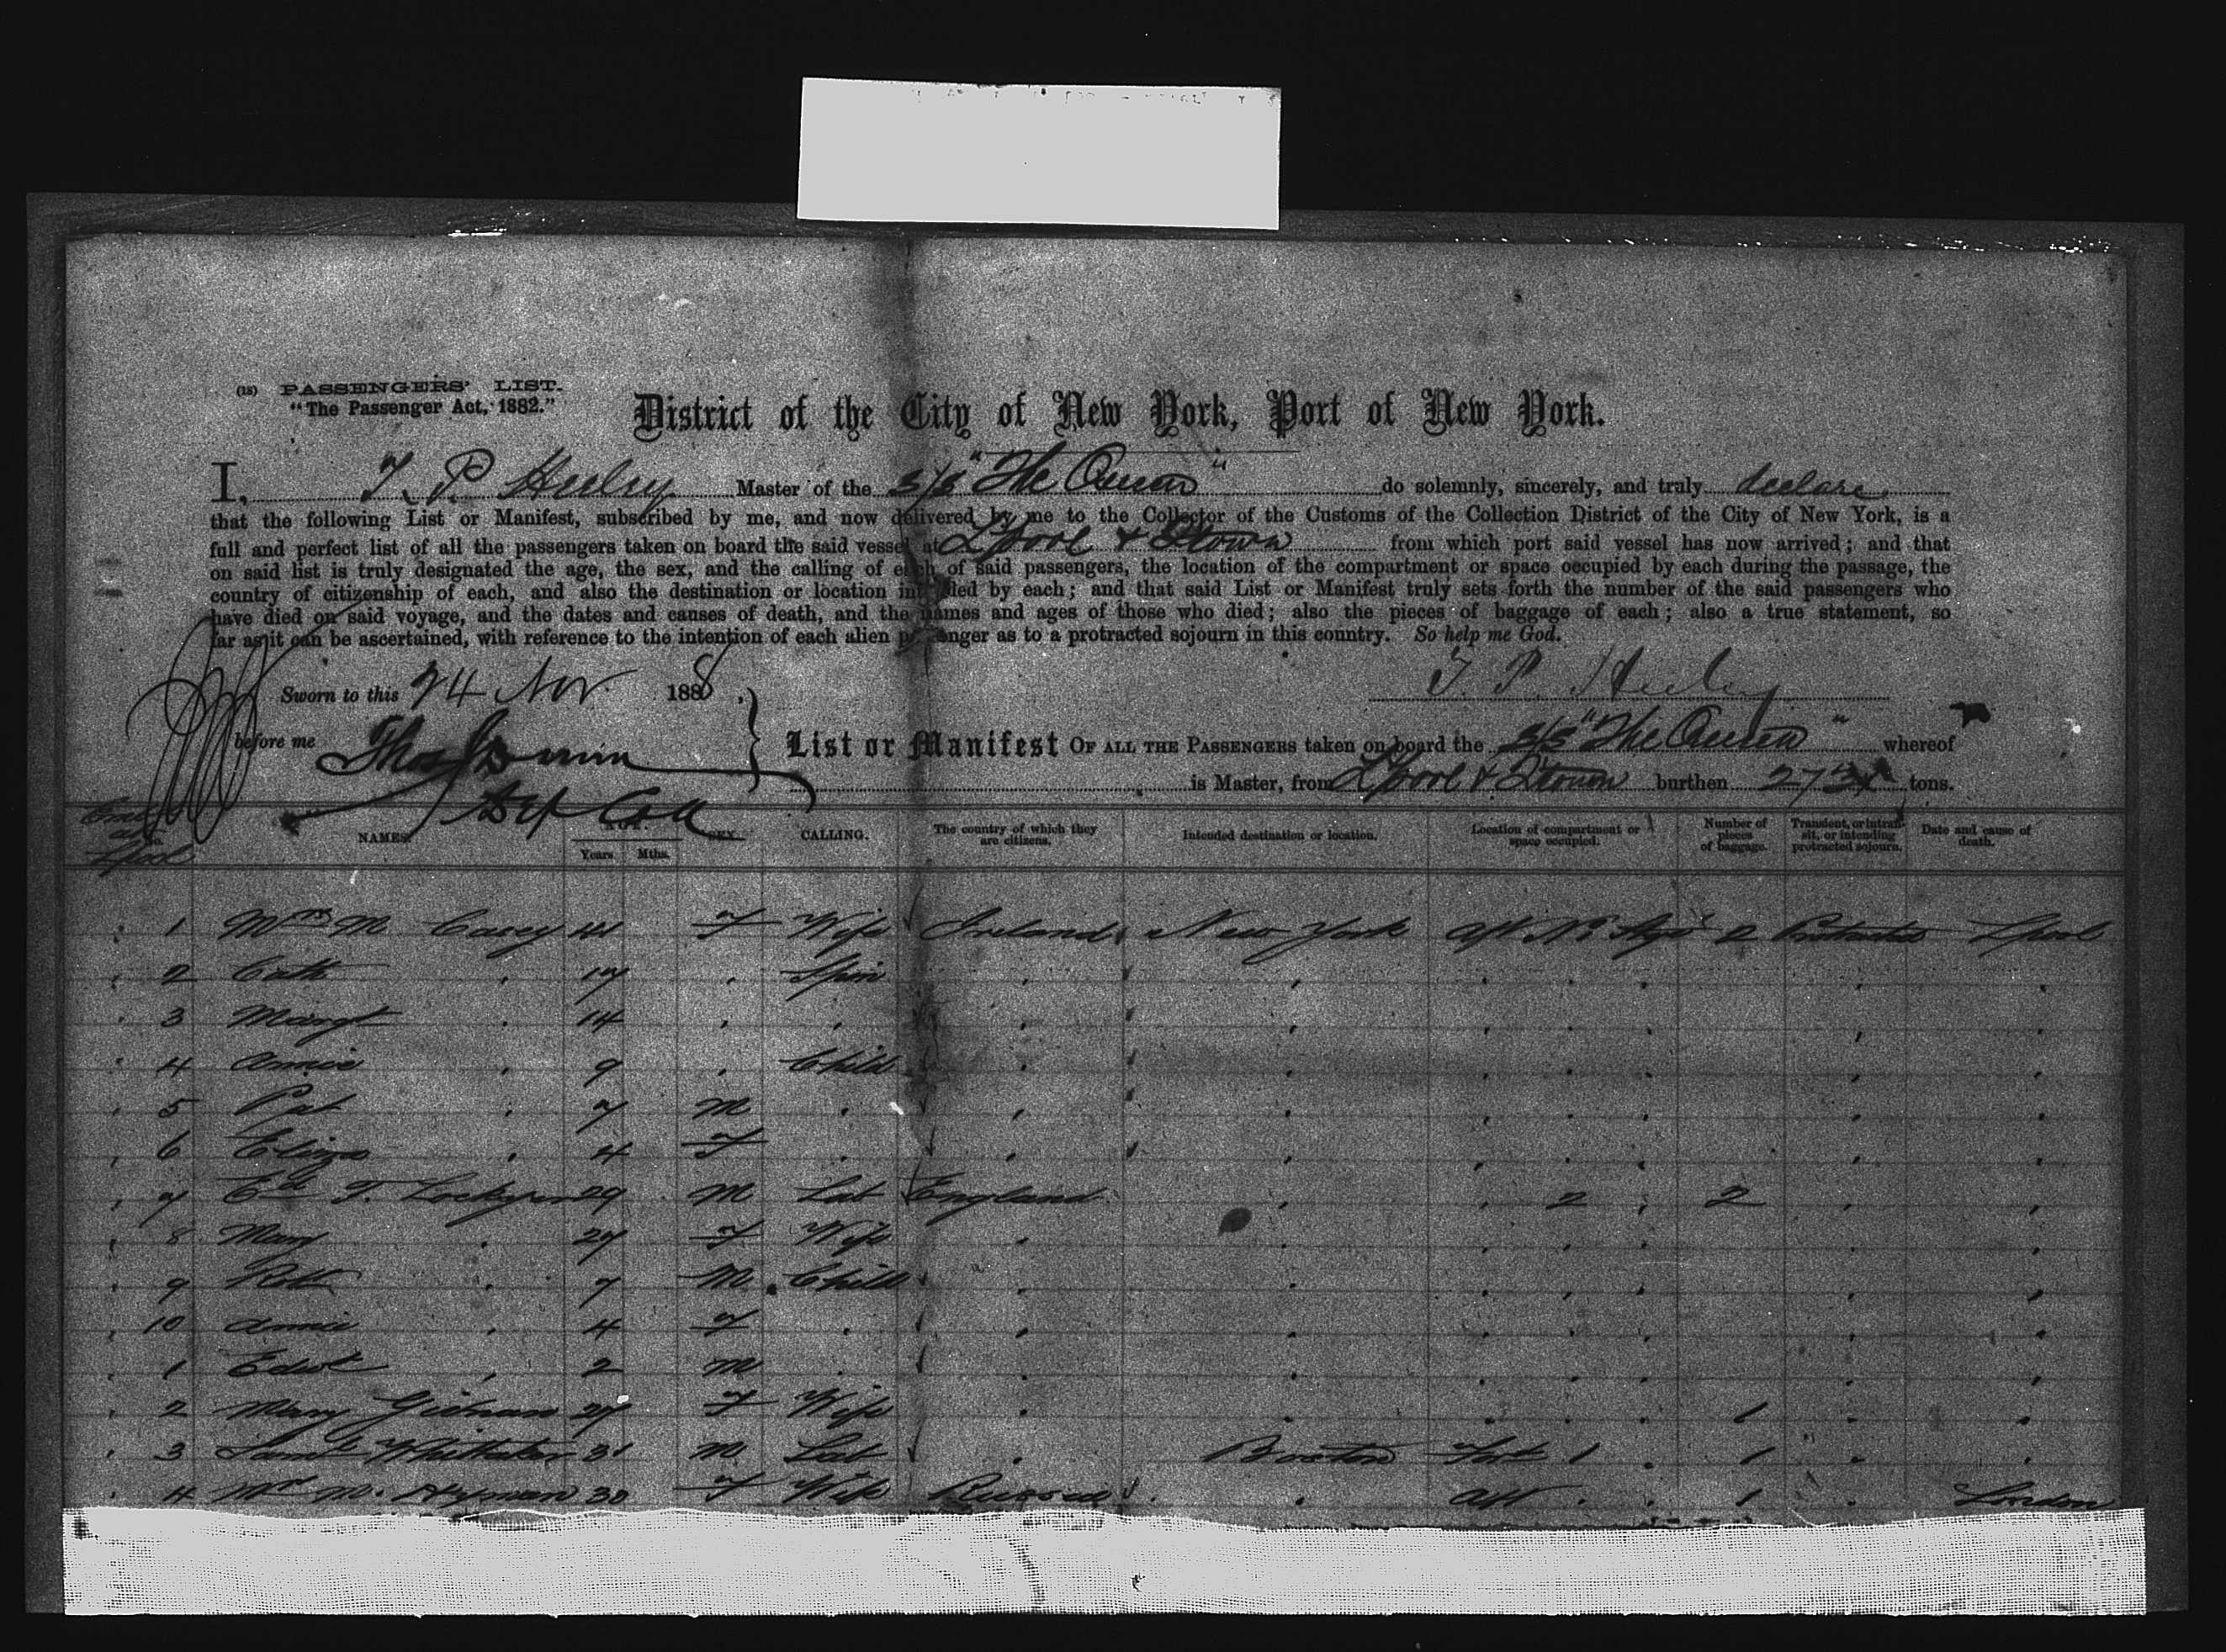 (18) PASSENGERS' LIST.
"The Passenger Act, 1882."
District of the City of New York, Port of New York.
I, T. P. Heeley Master of the S/S "The Queen" do solemnly, sincerely, and truly declare
that the following List or Manifest, subscribed by me, and now delivered by me to the Collector of the Customs of the Collection District of the City of New York, is a
full and perfect list of all the passengers taken on board the said vessel at L'pool & Q'town from which port said vessel has now arrived; and that
on said list is truly designated the age, the sex, and the calling of each of said passengers, the location of the compartment or space occupied by each during the passage, the
country of citizenship of each, and also the destination or location intended by each; and that said List or Manifest truly sets forth the number of the said passengers who
have died on said voyage, and the dates and causes of death, and the names and ages of those who died; also the pieces of baggage of each; also a true statement, so
far as it can be ascertained, with reference to the intention of each alien passenger as to a protracted sojourn in this country. So help me God.
Sworn to this 24 Nov. 1888. T. P. Heeley
before me Thos
List or Manifest OF ALL THE PASSENGERS taken on board the S/S "The Queen" whereof
is Master, from L'pool & Q'town burthen tons.
No. NAMES. AGE. Years. Mths. SEX. CALLING. The country of which they are citizens. Intended destination or location. Location of compartment or space occupied. Number of pieces of baggage. Transient, or in transit, or intending protracted sojourn. Date and cause of death.
1 Mrs M Casey 44 F Wife Ireland New York Aft 2 Protracted Lpool
2 Cath " 17 " Spin " " " " " " "
3 Margt " 14 " " " " " " " " "
4 Annie " 9 " Child " " " " " " "
5 Pat " 7 M " " " " " " " "
6 Eliza " 4 F " " " " " " " "
7 Ed T. Lockyer 29 M Lab England " " 2 " 2 " "
8 Mary " 27 F Wife " " " " " " "
9 Robt " 7 M Child " " " " " " "
10 Annie " 4 F " " " " " " " "
1 Edwd " 2 M " " " " " " " "
2 Mary 27 F Wife " " " " 1 " "
3 Saml Whittaker 31 M Lab " Boston 1 " 1 " "
4 Mrs M. Hyman 30 F Wife Russia " Aft " " 1 " London